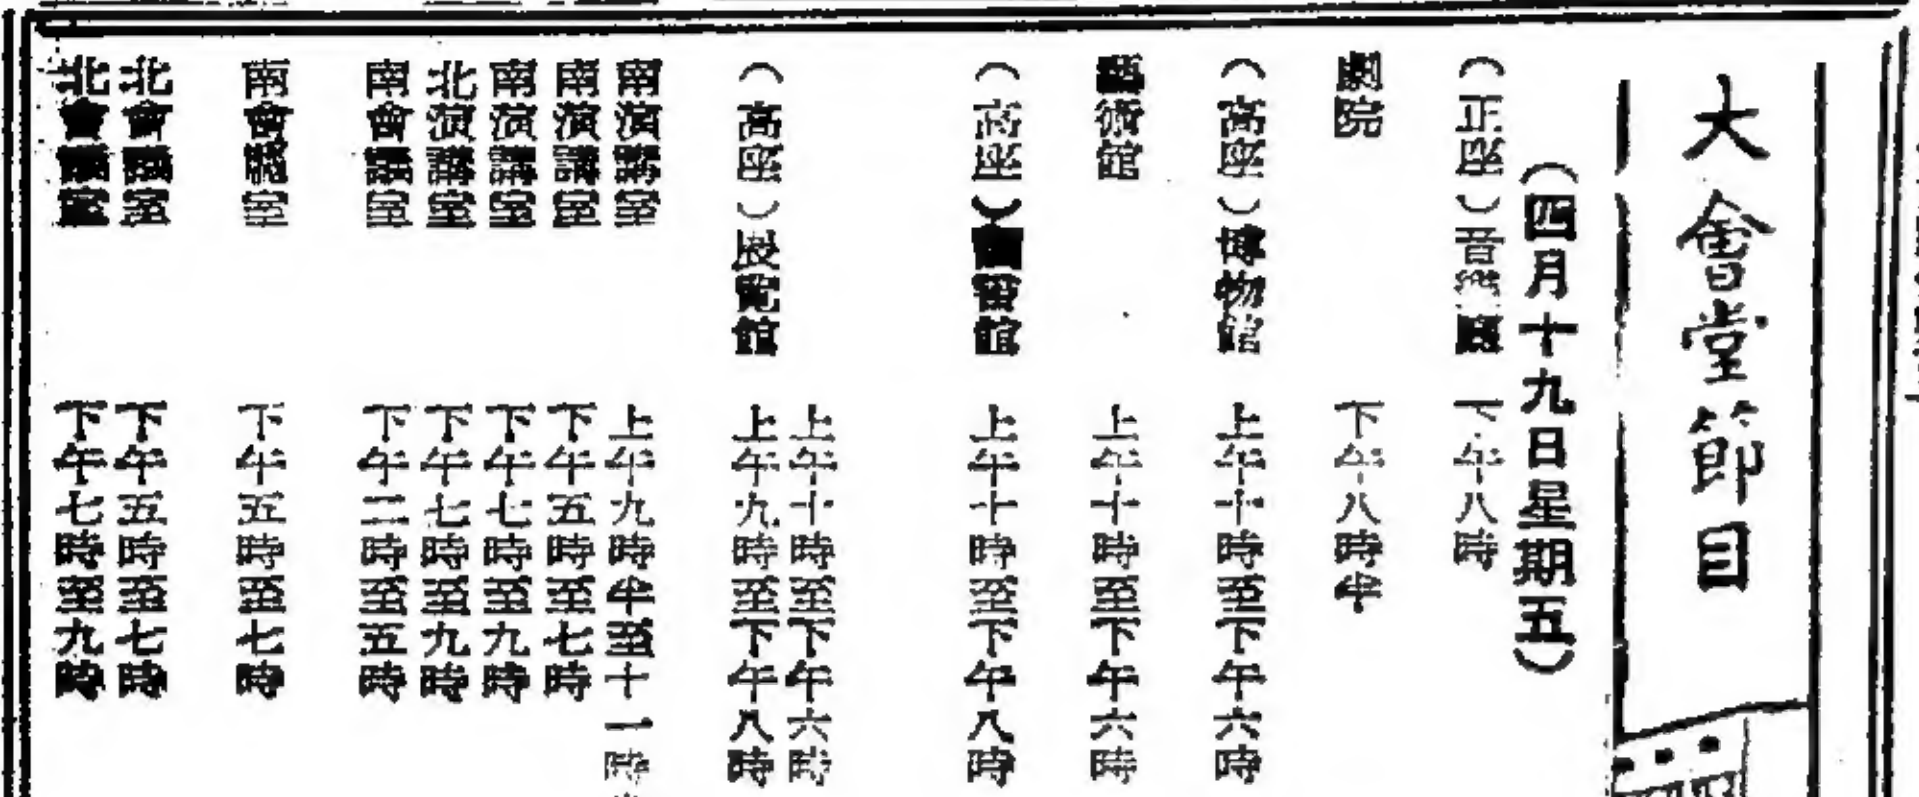 大會堂節目
（四月十九日星期五）
（正座）音樂廳 下午八時
劇院 下午八時半
（高座）博物館 上午十時至下午六時
藝術館 上午十時至下午六時
（高座）圖書館 上午十時至下午八時
上午十時至下午六時
（高座）展覽館 上午九時至下午八時
南演講室 上午九時半至十一時
南演講室 下午五時至七時
南演講室 下午七時至九時
北演講室 下午七時至九時
南會議室 下午二時至五時
南會議室 下午五時至七時
北會議室 下午五時至七時
北會議室 下午七時至九時